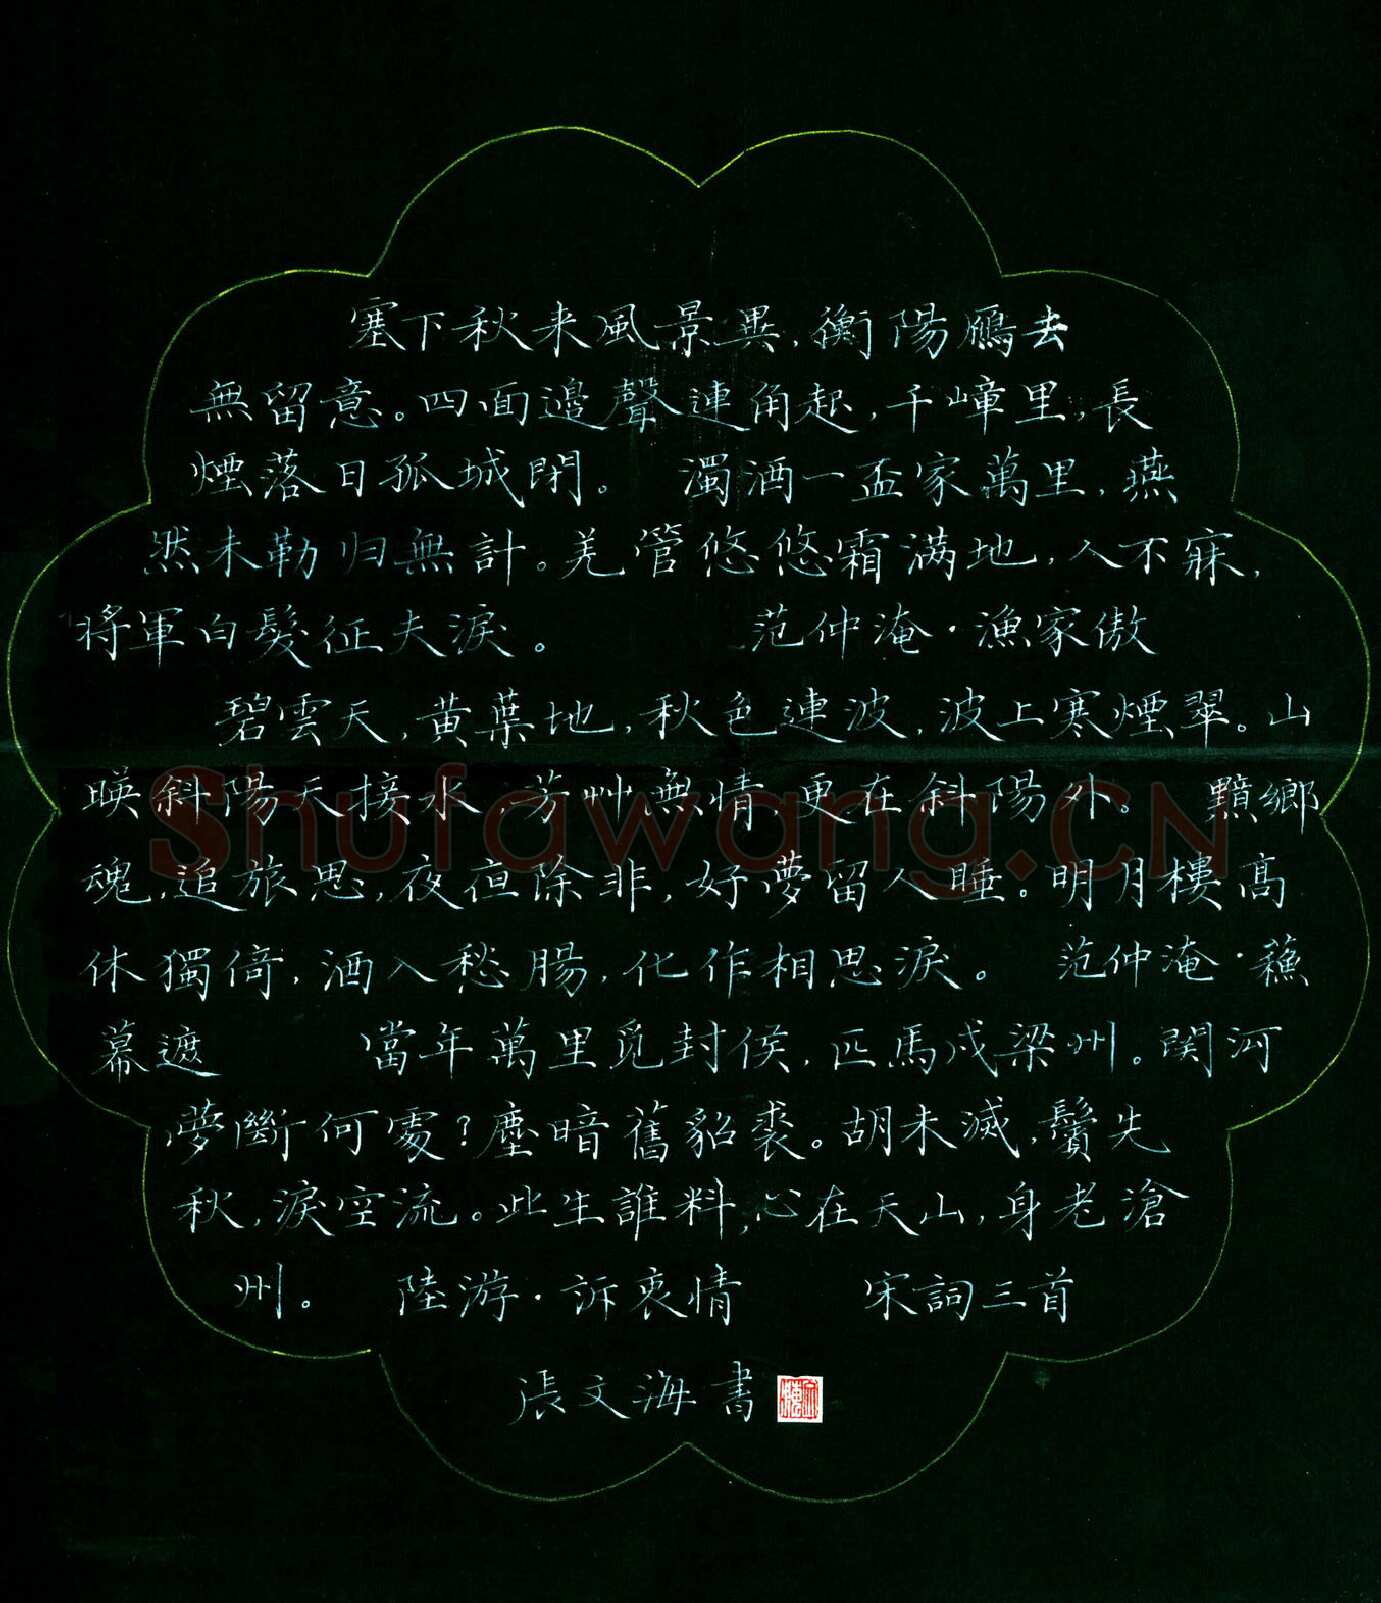 塞下秋来風景異，衡陽鴈去
無留意。四面邊聲連角起，千嶂里，長
煙落日孤城閉。 濁酒一盃家萬里，燕
然未勒归無計。羌管悠悠霜满地，人不寐，
将軍白髮征夫淚。 范仲淹·漁家傲
碧雲天，黄葉地，秋色連波，波上寒煙翠。山
暎斜陽天接水，芳艸無情，更在斜陽外。 黯鄉
魂，追旅思，夜夜除非，好夢留人睡。明月樓高
休獨倚，酒入愁腸，化作相思淚。 范仲淹·蘓
幕遮 當年萬里覓封侯，匹馬戍梁州。関河
夢斷何處？塵暗舊貂裘。胡未滅，鬢先
秋，淚空流。此生誰料，心在天山，身老滄
州。 陸游·訴衷情 宋詞三首
張文海書
Shufawang.CN